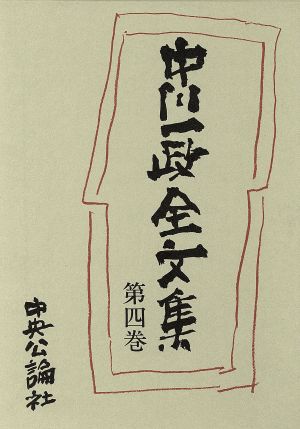 中川一政全文集
第四巻
中央公論社